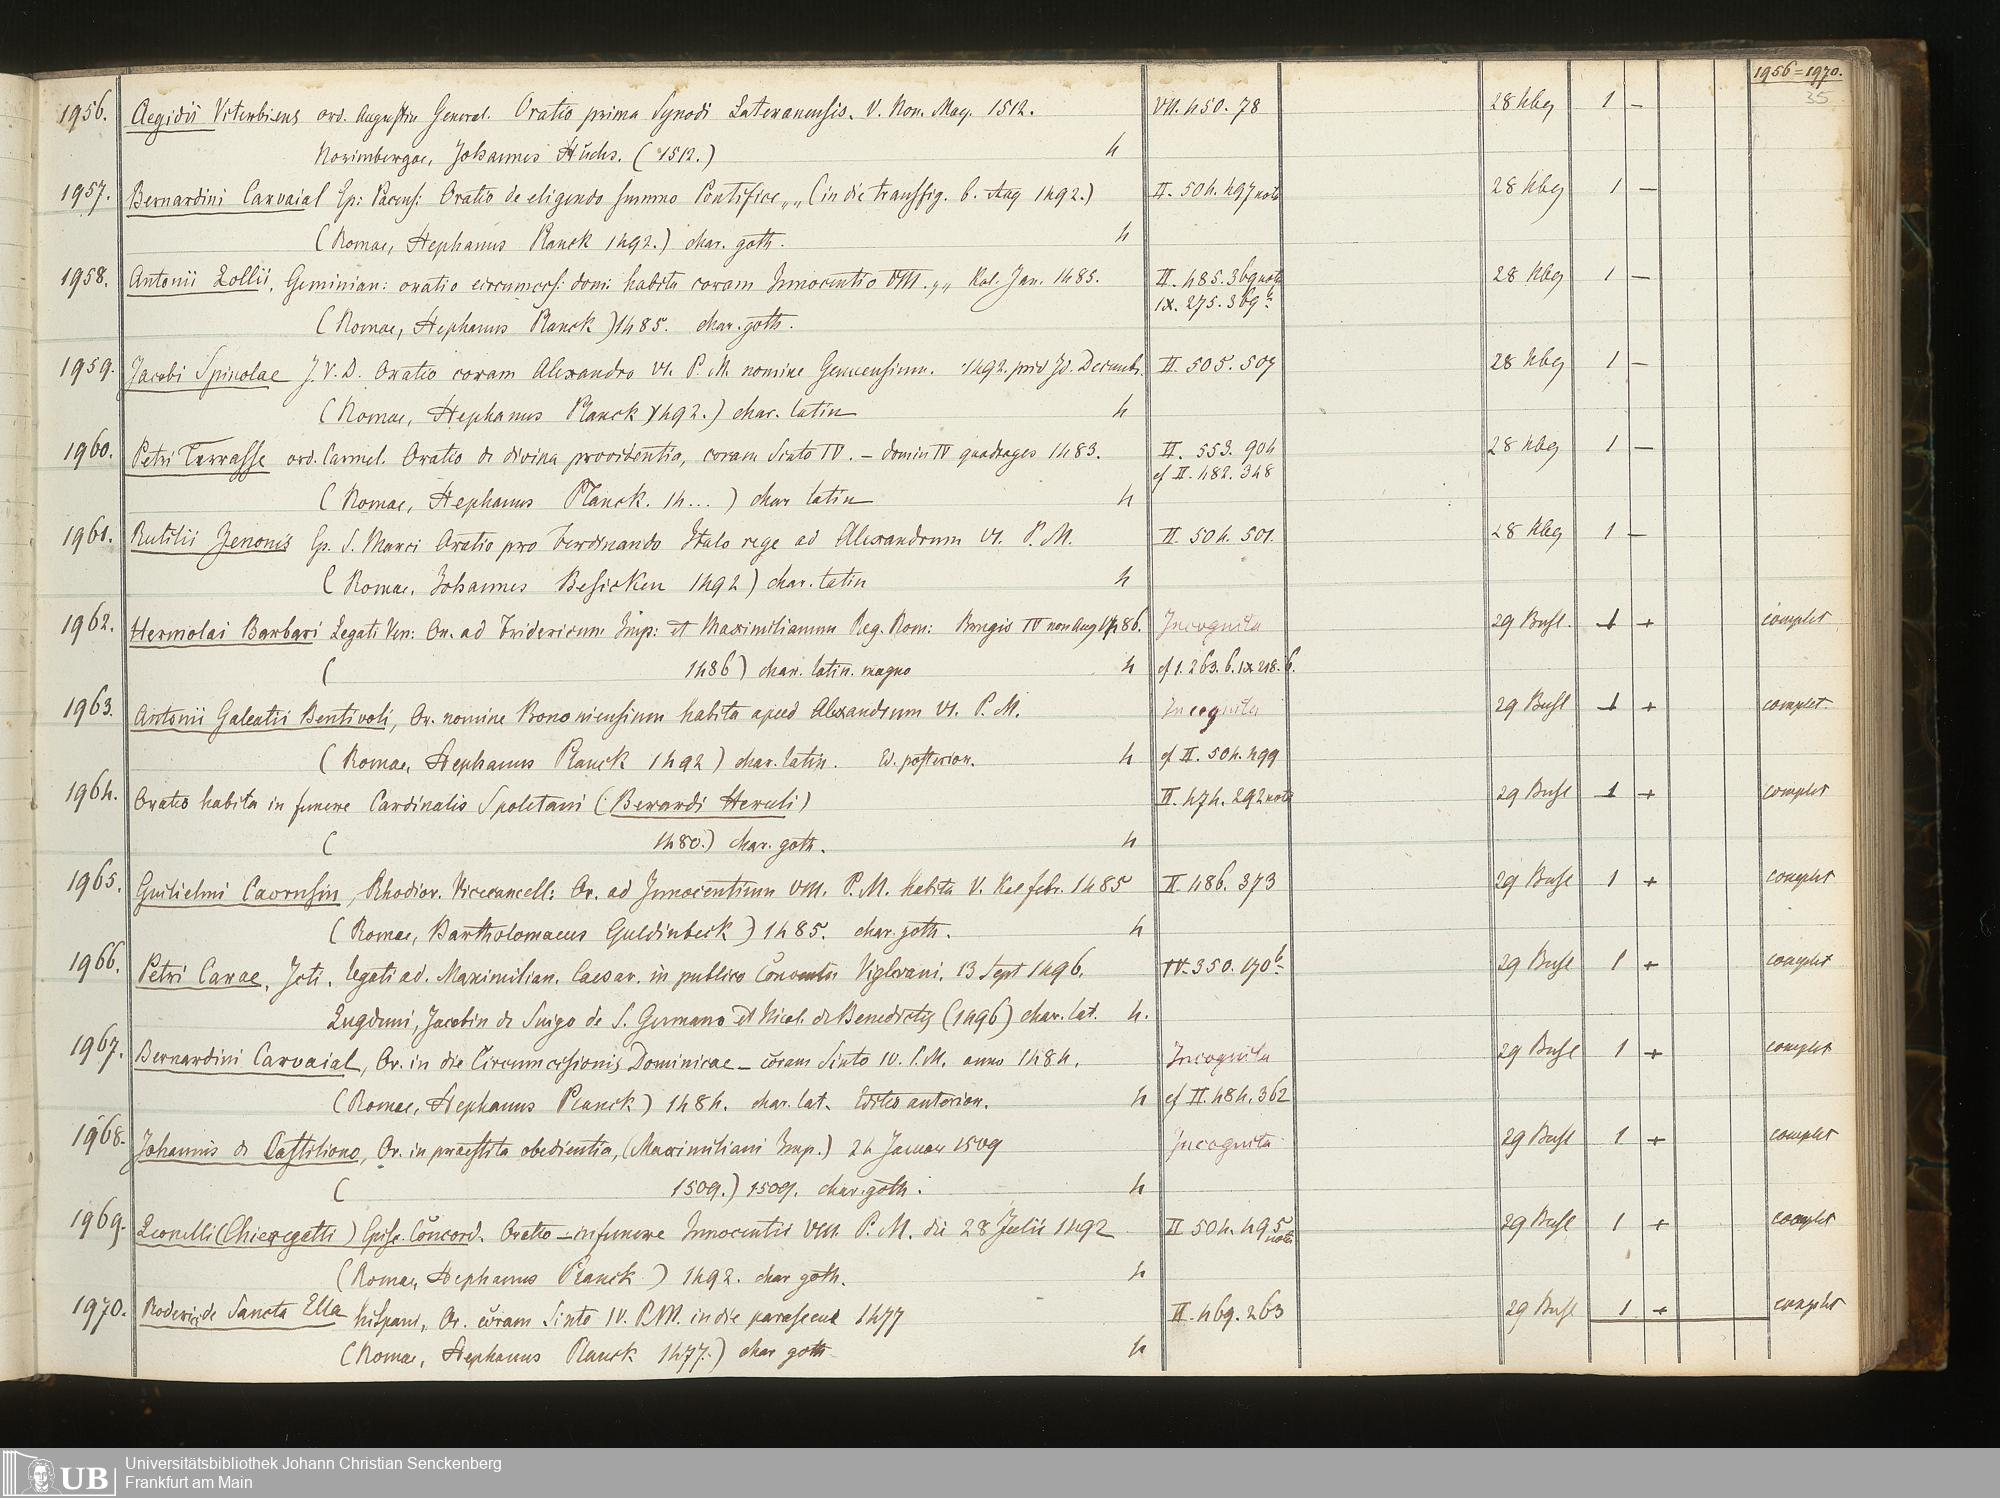 1956=1970.
35
1956. Aegidii Viterbiens ord. Augustin General. Oratio prima Synodi Lateranensis. V. Non. May. 1512. VII. 450. 78 28 hbg 1 –
Norimbergae, Johannes Stuchs. (1512.) 4
1957. Bernardini Carvaial Ep: Pacens: Oratio de eligendo summo Pontifice „ „ (in die transfig. 6. Aug 1492.) II. 504. 497 nota 28 hbg 1 –
(Romae, Stephanus Planck 1492.) char. goth. 4
1958. Antonii Lollii, Geminian: oratio circumcis: dom: habita coram Innocentio VIII. „ „ Kal. Jan. 1485. II. 485. 369 nota 28 hbg 1 –
IX. 275. 369 b
(Romae, Stephanus Planck) 1485. char. goth.
1959. Jacobi Spinolae J. V. D. Oratio coram Alexandro VI. P. M nomine Genuensium. 1492. prid Id. Decemb. II. 505. 507 28 hbg 1 –
(Romae, Stephanus Planck 1492.) char. latin 4
1960. Petri Terrasse ord. Carmel. Oratio de divina providentia, coram Sixto IV. – domin IV quadrages 1483. II. 553. 904 28 hbg 1 –
cf II. 482. 348
(Romae, Stephanus Planck. 14...) char latin 4
1961. Rutilii Zenonis Ep. S. Marci Oratio pro Ferdinando Italo rege ad Alexandrum VI. P. M. II. 504. 501. 28 hbg 1 –
(Romae. Johannes Besicken 1492) char. latin 4
1962. Hermolai Barbari Legati Ven: Or. ad Fridericum Imp: et Maximilianum Reg. Rom: Brugis IV non Aug 1486. Incognita 29 Busl. 1 + complet
( 1486) char. latin. magno 4 cf I. 263. 6. IX 218. 6.
1963. Antonii Galeatii Bentivoli, Or. nomine Bononiensium habita apud Alexandrum VI. P. M. Incognita 29 Busl 1 + complet.
(Romae, Stephanus Planck 1492) char. latin. Ed. posterior. 4 cf II. 504. 499
1964. Oratio habita in funere Cardinalis Spoletani (Berardi Heruli) II. 474. 292 nota 29 Busl 1 + complet
( 1480.) char. goth. 4
1965. Guilielmi Caorusin, Rhodior. Vicecancell: Or. ad Innocentium VIII. P. M. habita V. Kal febr. 1485 II. 486. 373 29 Busl 1 + complet
(Romae, Bartholomaeus Guldinbeck) 1485. char. goth. 4
1966. Petri Carae, Jcti. legati ad. Maximilian. Caesar. in publico Conventu Viglevani. 13 Sept 1496. IV. 350. 170 b 29 Busl 1 + complet
Lugduni, Jacobin de Suigo de S. Germano et Nicol. de Benedictis (1496) char. lat. 4.
1967. Bernardini Carvaial, Or. in die Circumcisionis Dominicae – coram Sixto IV. P. M. anno 1484. Incognita 29 Busl 1 + complet
(Romae, Stephanus Planck) 1484. char. lat. Editio anterior. 4 cf II. 484. 362
1968. Johannis de Castiliono, Or. in praestita obedientia, (Maximiliani Imp.) 24 Januar 1509 Incognita 29 Busl 1 + complet
( 1509.) 1509. char. goth. 4
1969. Leonelli (Chieregatti) Epis. Concord. Oratio – in funere Innocentii VIII. P. M. die 28 Julii 1492 II 504. 495 nota 29 Busl 1 + complet
(Romae, Stephanus Planck) 1492. char goth. 4
1970. Roderici de Sancta Ella hispani, Or. coram Sixto IV. P. M. in die parasceue 1477 II. 469. 263 29 Busl 1 + complet
(Romae, Stephanus Planck 1477.) char goth 4
UB Universitätsbibliothek Johann Christian Senckenberg
Frankfurt am Main